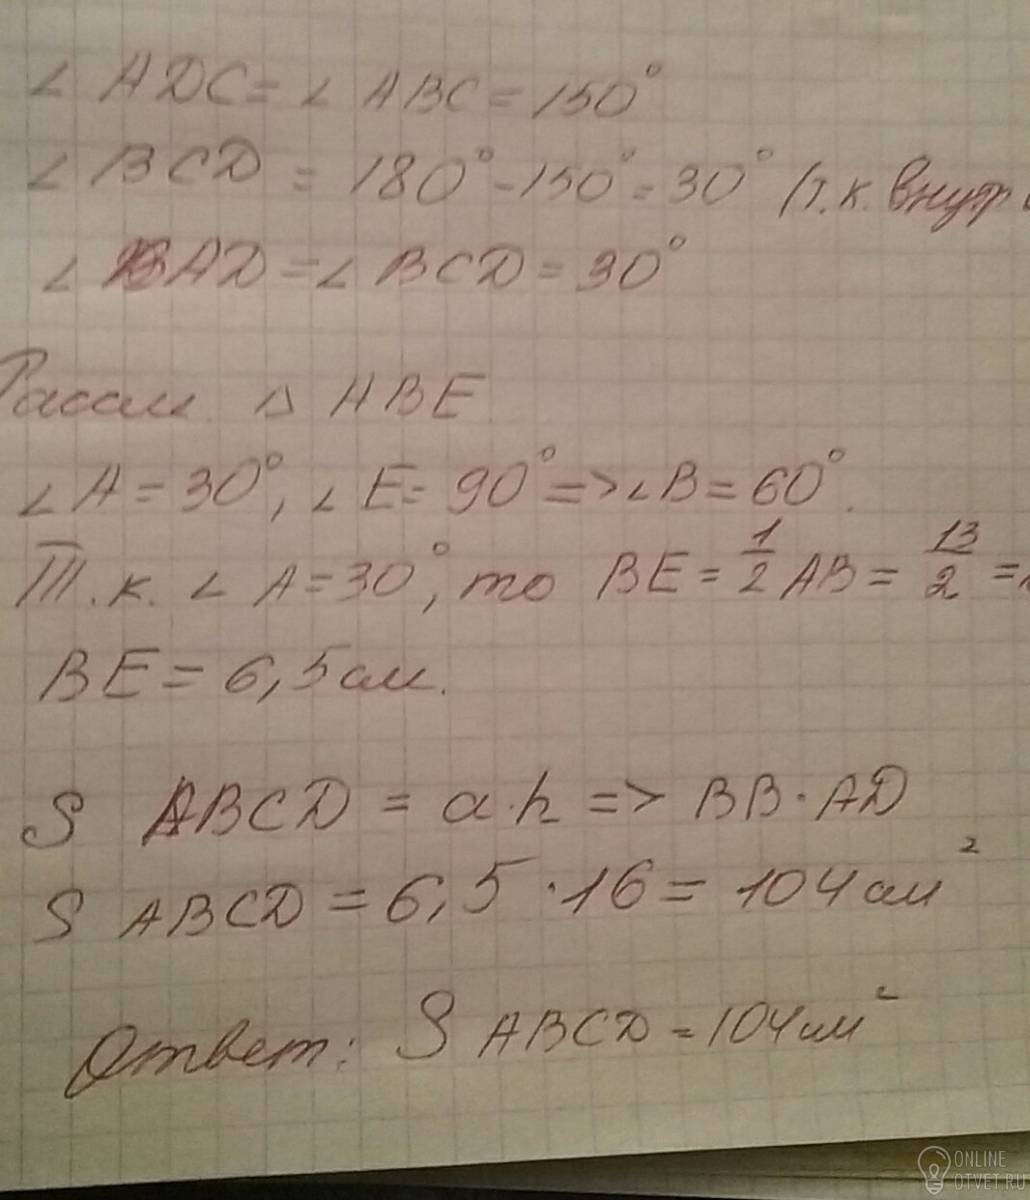 ∠ ADC = ∠ ABC = 150°
∠ BCD = 180° - 150° = 30° (т.к. внутр
∠ BAD = ∠ BCD = 30°
Рассм. △ ABE
∠ A = 30°, ∠ E = 90° => ∠ B = 60°.
Т.к. ∠ A = 30°, то BE = 1/2 AB = 13/2 =
BE = 6,5 см.
S ABCD = a · h => BB · AD
S ABCD = 6,5 · 16 = 104 см²
Ответ: S ABCD = 104 см²
ONLINE
OTVET.RU